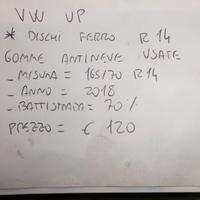 VW UP
* DISCHI FERRO R 14
GOMME ANTINEVE USATE
- MISURA = 165/70 R14
- ANNO = 2018
- BATTISTRADA = 70%
PREZZO = € 120